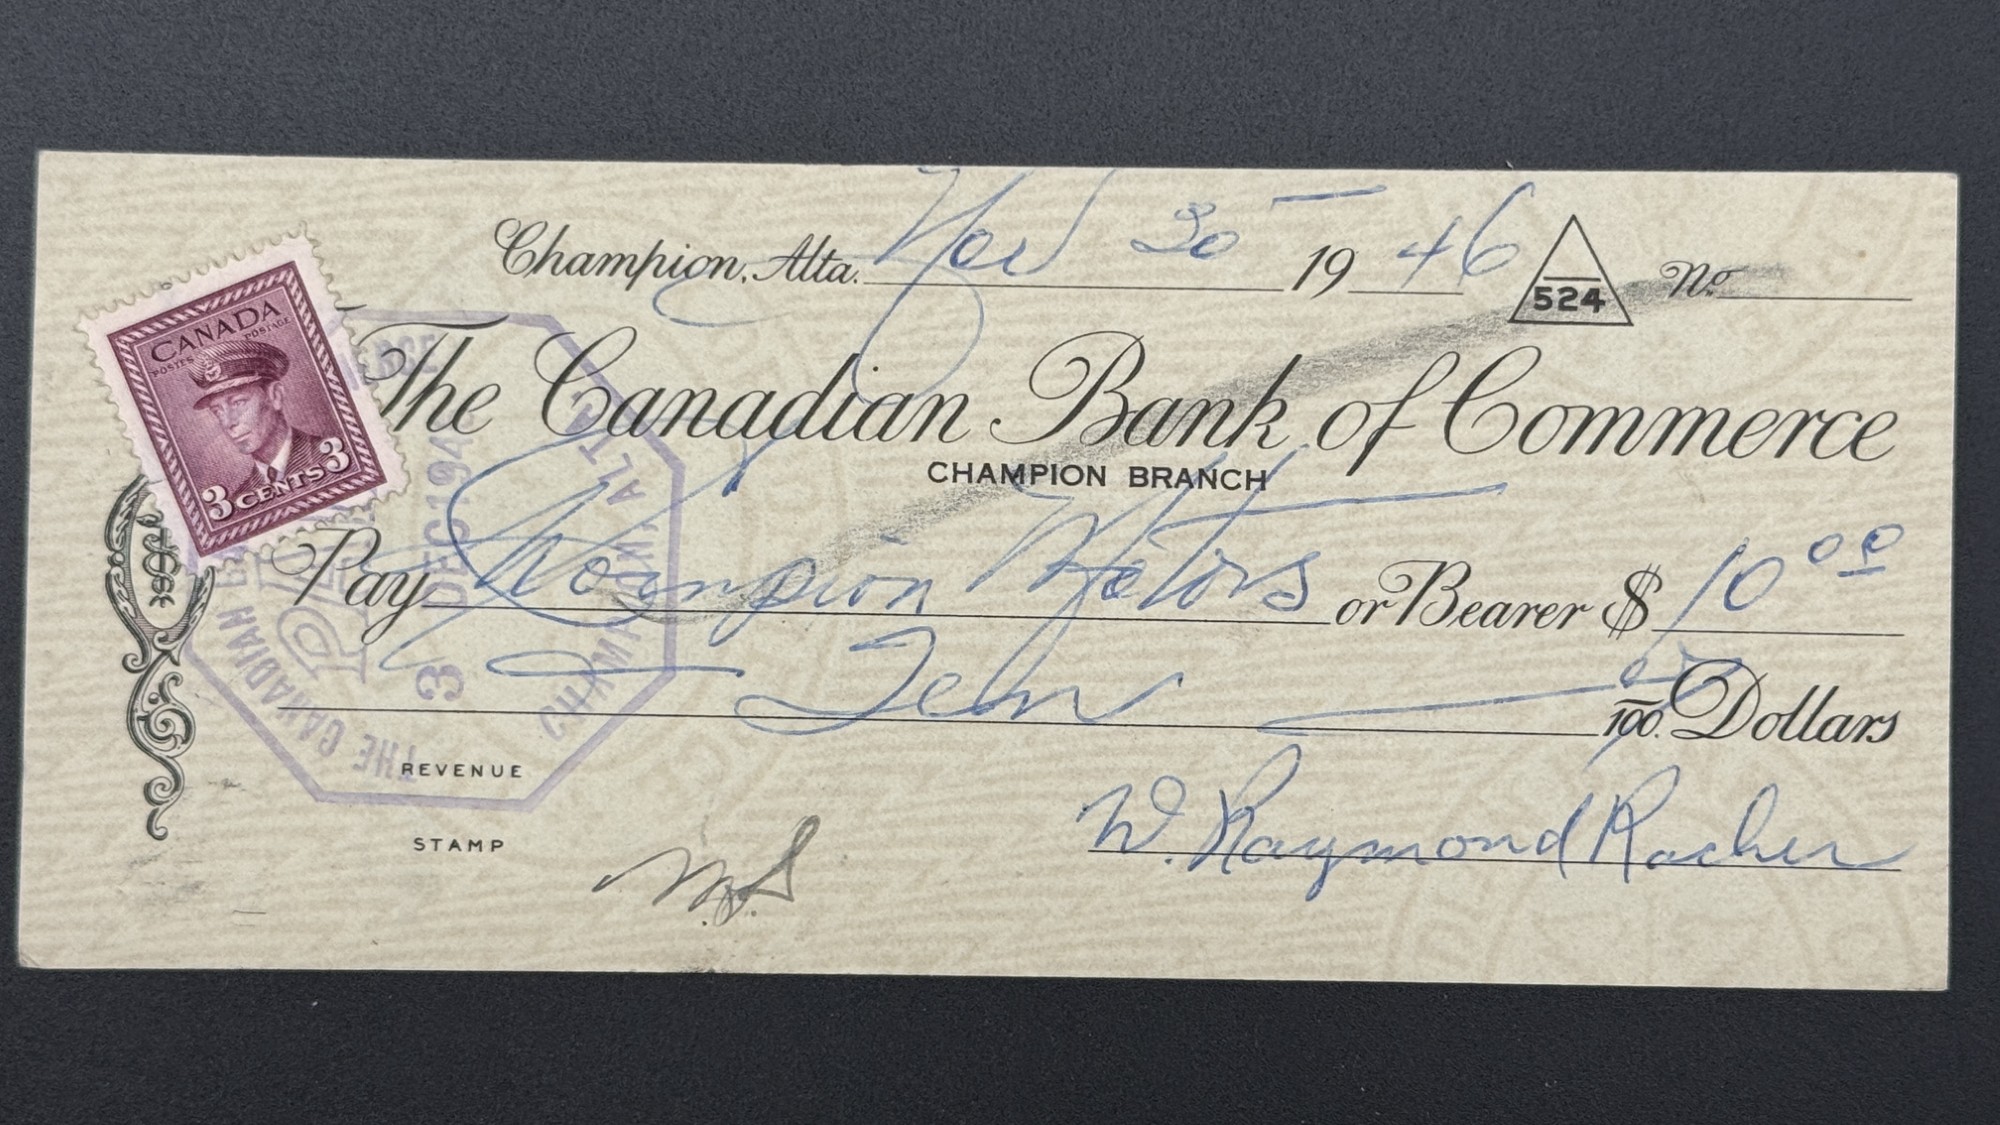 Champion, Alta. Nov 30 19 46 524 No.
CANADA
POSTES POSTAGE
3 CENTS 3
The Canadian Bank of Commerce
CHAMPION BRANCH
Pay Champion Motors or Bearer $ 10 00
Ten 00/100 Dollars
THE CANADIAN BANK COMMERCE
PAID
3 DEC 194
CHAMPION, ALTA
REVENUE
STAMP
W. Raymond Racher